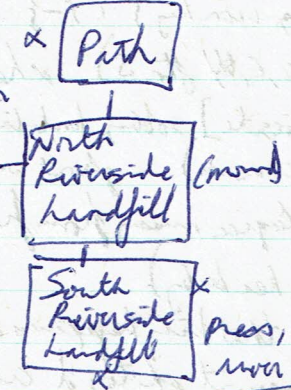 Path
North
Riverside
Landfill
(mound)
South
Riverside
Landfill
press,
river